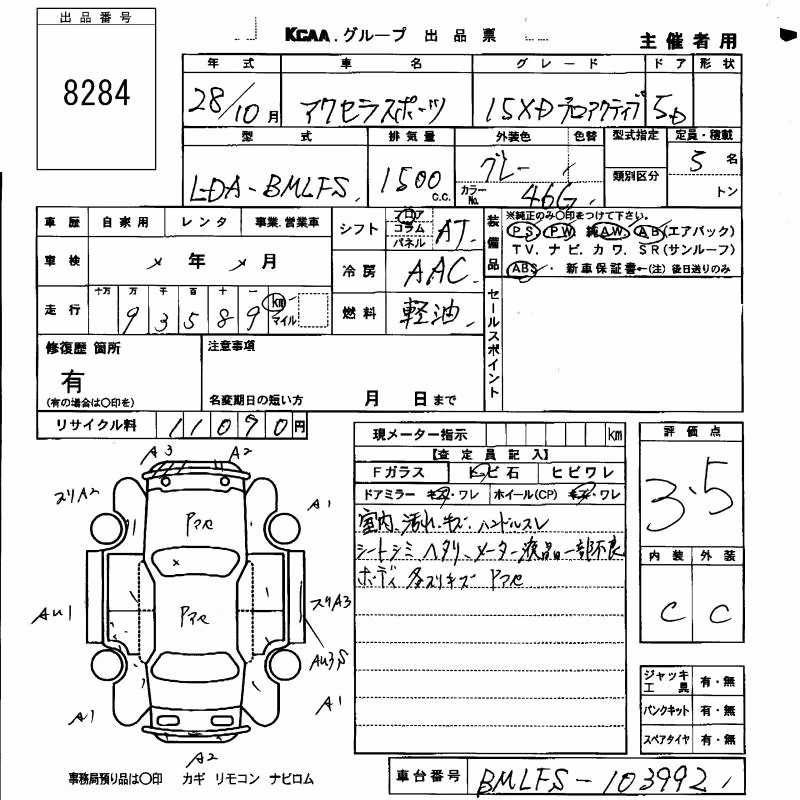 出品番号
8284
KCAA.グループ 出品票
主催者用
年式 車名 グレード ドア 形状
28/10月 アクセラスポーツ 15XDプロアクティブ 5D
型式 排気量 外装色 色替 型式指定 定員・積載
LDA-BMLFS 1500 c.c. グレー 5名
カラーNo. 46G 類別区分 トン
車歴 自家用 レンタ 事業.営業車
シフト フロア コラム パネル AT
装備品 ※純正のみ〇印をつけて下さい。
PS PW 純AW AB(エアバック)
TV. ナビ. カワ. SR(サンルーフ)
ABS. 新車保証書←(注)後日送りのみ
車検 年 月
冷房 AAC
走行 十万 万 千 百 十 一
93589 km マイル
燃料 軽油
セールスポイント
修復歴 箇所
有
(有の場合は〇印を)
注意事項
名変期日の短い方 月 日まで
リサイクル料 11090円
現メーター指示 km
【査定員記入】
Fガラス トビ石 ヒビワレ
ドアミラー キズ・ワレ ホイール(CP) キズ・ワレ
室内、汚れ.キズ.ハンドルスレ
シートシミ ヘタリ、メーター液晶一部不良
ボディ 各スリキズ Pアセ
評価点
3.5
内装 外装
C C
A3 A2
スリA2 A1
Pアセ
Pアセ
AU1 スリA3
AU3,S
A1 A1
A2
ジャッキ工具 有・無
パンクキット 有・無
スペアタイヤ 有・無
事務局預り品は〇印 カギ リモコン ナビロム
車台番号 BMLFS-103992